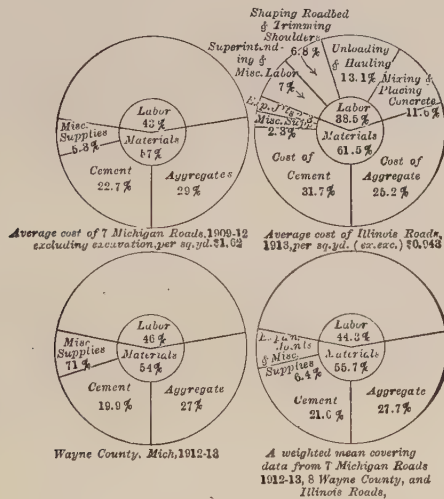 Labor
43%
Materials
57%
Misc.
Supplies
5.3%
Cement
22.7%
Aggregates
29%
Average cost of 7 Michigan Roads, 1909-12
excluding excavation, per sq. yd. $1.62
Shaping Roadbed
& Trimming
Shoulders
6.8%
Superintend-
ing &
Misc. Labor
7%
Unloading
& Hauling
13.1%
Mixing &
Placing
Concrete
11.6%
Labor
38.5%
Materials
61.5%
Misc. Sup.
2.3%
Cost of
Cement
31.7%
Cost of
Aggregate
25.2%
Average cost of Illinois Roads,
1913, per sq. yd. (ex. exc.) $0.943
Labor
46%
Materials
54%
Misc.
Supplies
71%
Cement
19.9%
Aggregate
27%
Wayne County, Mich, 1912-13
Labor
44.3%
Materials
55.7%
Joints
& Misc.
Supplies
6.4%
Cement
21.6%
Aggregate
27.7%
A weighted mean covering
data from 7 Michigan Roads
1912-13, 8 Wayne County, and
Illinois Roads,